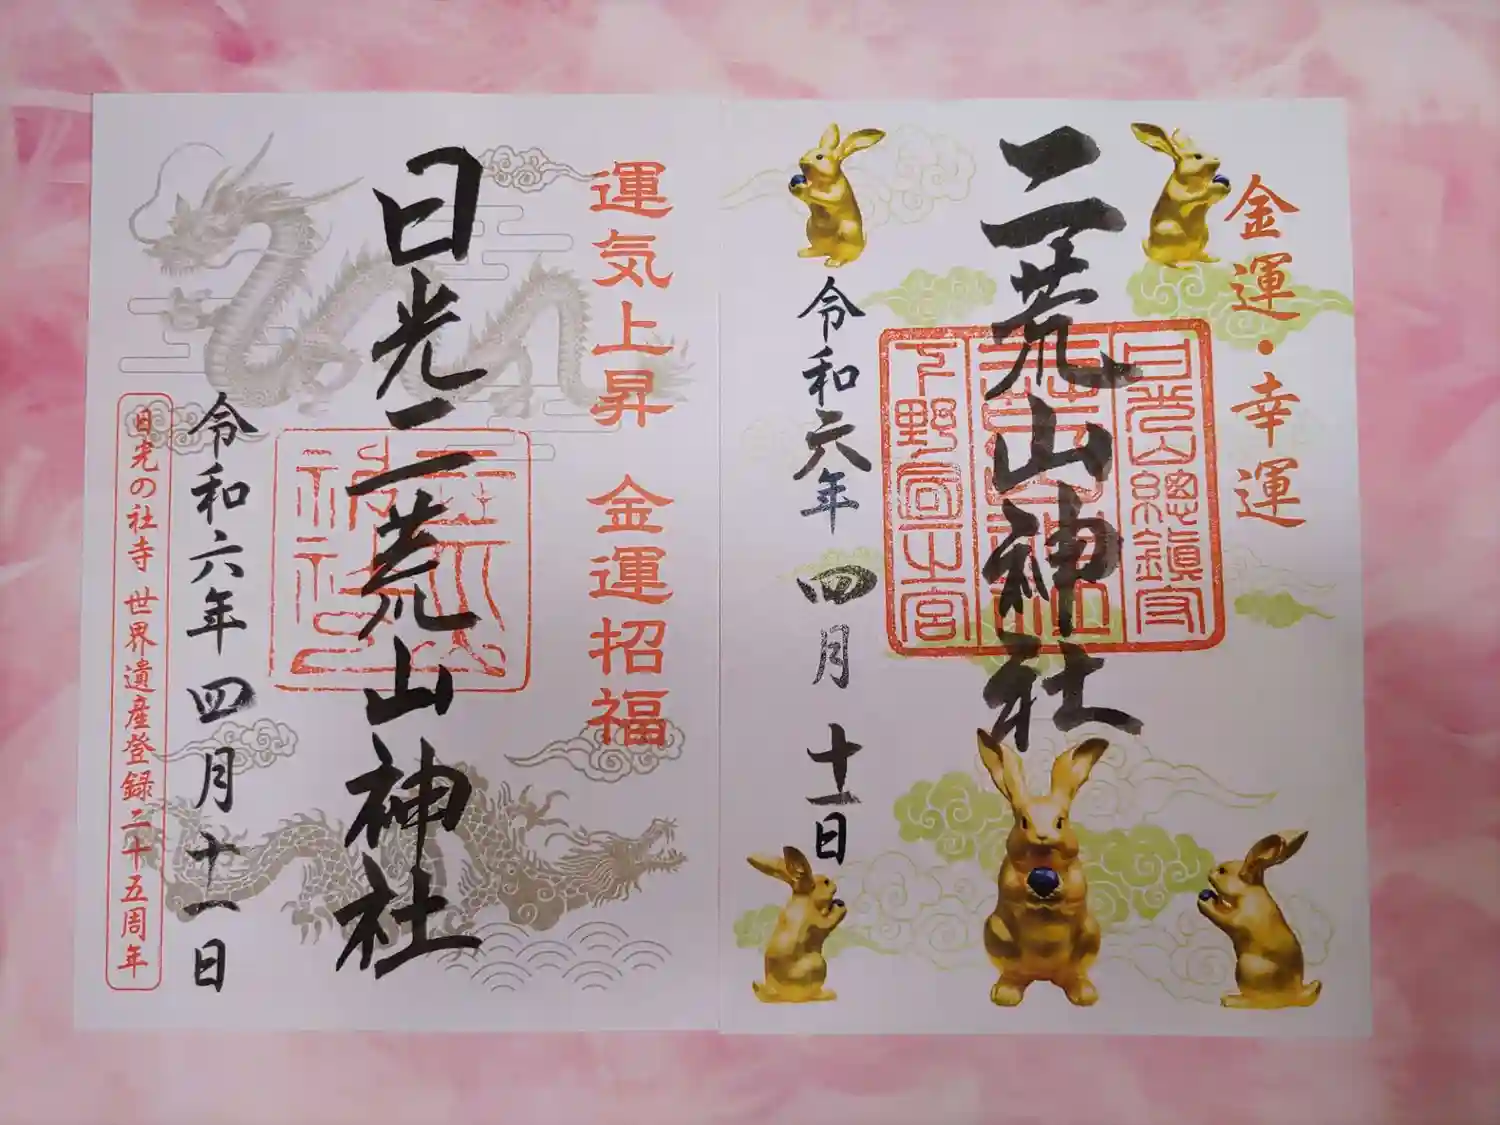 金運・幸運
二荒山神社
日光山總鎮守
下野国一之宮
令和六年 四月 十一日
運気上昇 金運招福
日光二荒山神社
令和六年 四月十一日
日光の社寺 世界遺産登録二十五周年